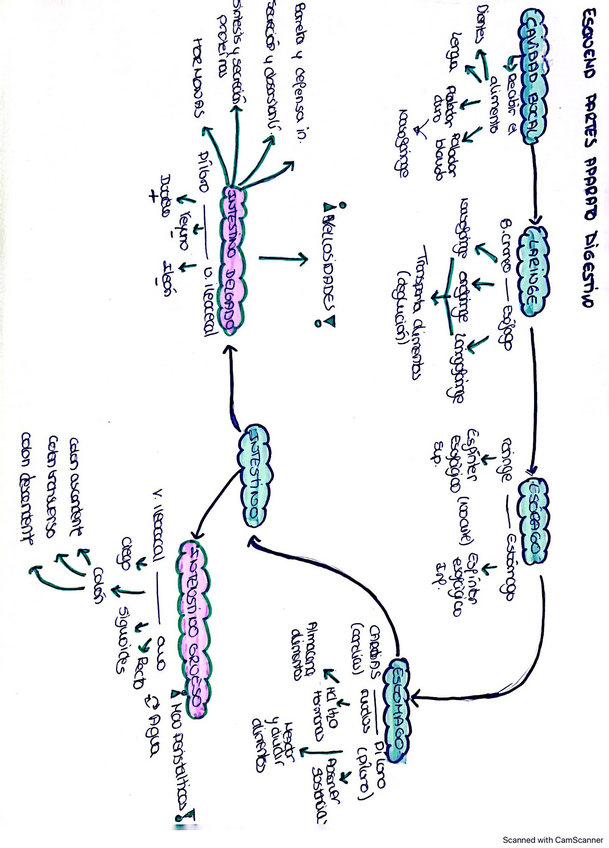 ESQUEMA PARTES APARATO DIGESTIVO
CAVIDAD BUCAL
Recibir el
alimento
Dientes
Lengua
Paladar
duro
Paladar
blando
Nasofaringe
LARINGE
B. craneo — Esófago
Nasofaringe
orofaringe
Laringofaringe
Transporta alimentos
(deglución)
ESÓFAGO
Faringe — Estómago
Esfínter
Esofágico
Sup.
(voluntario)
Esfínter
esofágico
Inf.
ESTÓMAGO
CARDIAS — Píloro
(cardias)
(píloro)
Almacena
alimentos
HCl H2O
Hormonas
Mezclar
y dividir
alimentos
Absorber
sustancias
INTESTINO
INTESTINO DELGADO
¡VELLOSIDADES!
Barrera y defensa in.
Secreción y absorción
Síntesis y secreción
proteínas
HORMONAS
Píloro — V. Ileocecal
Duodeno
+
Yeyuno
-
Ileón
-
INTESTINO GRUESO
V. Ileocecal — ano
Ciego
Colón
Sigmoides
Recto
Colon ascendente
Colon transverso
colon descendente
¡Mov peristálticos!
Agua
Scanned with CamScanner